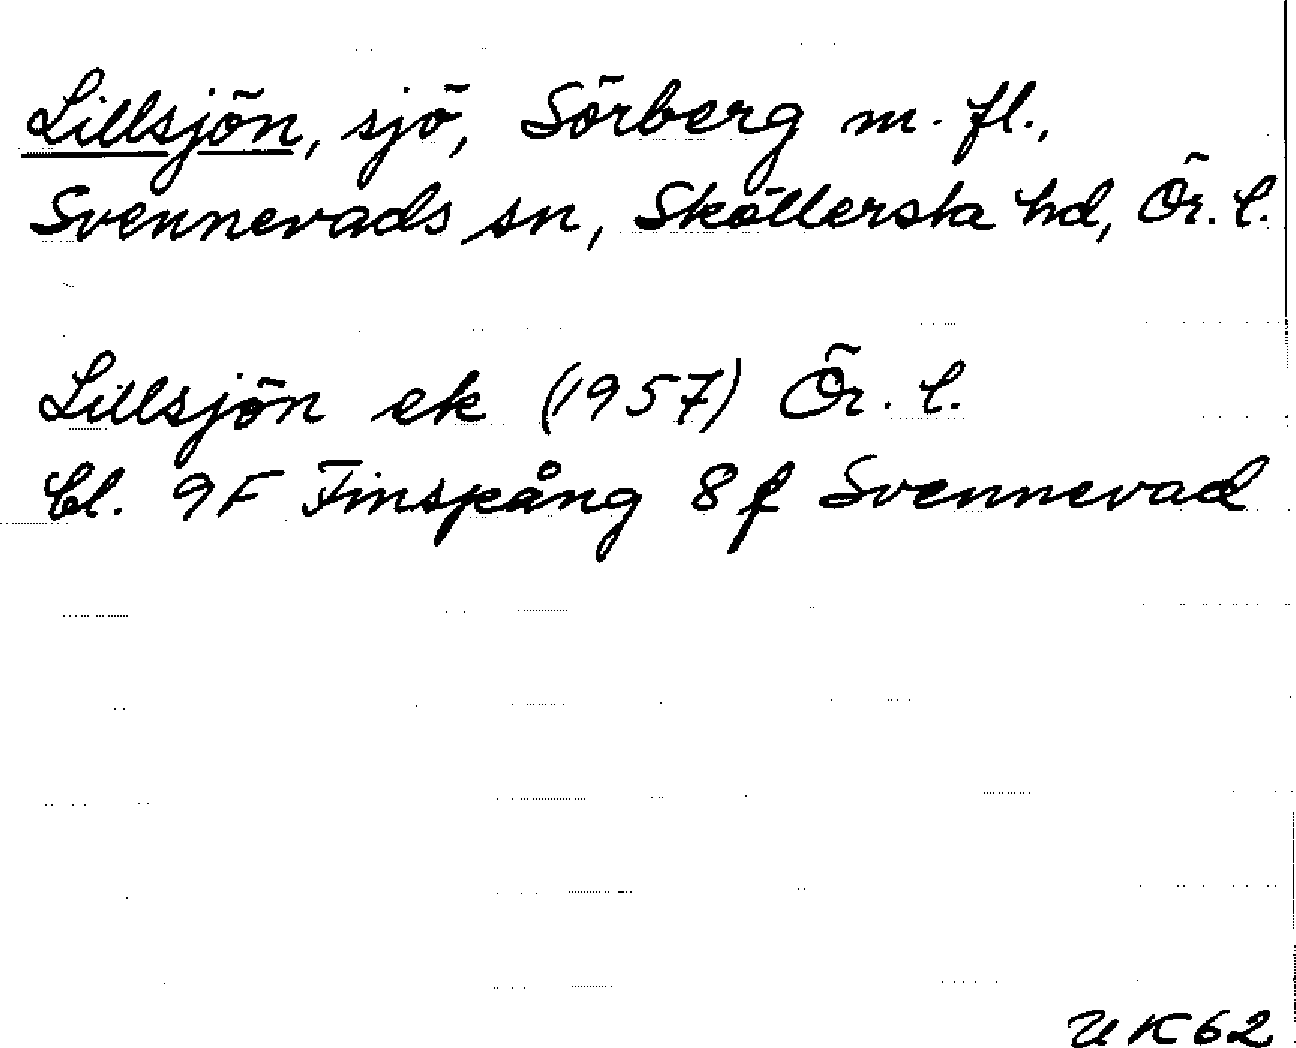 Lillsjön, sjö, Sörberg m. fl.,
Svennevads sn, Sköllersta hd, Ör. l.
Lillsjön ek (1957) Ör. l.
bl. 9F Finspång 8 f Svennevad
UK62